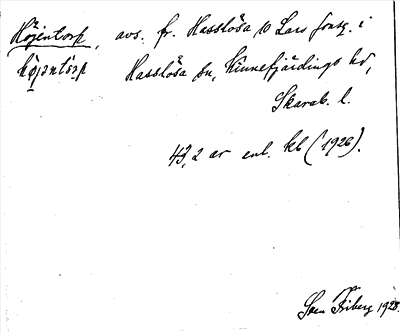 Höjentorp, avs. fr. Hasslösa 10 Lars jonsg. i
höjentorp Hasslösa sn, Kinnefjärdings hd,
Skarab. l.
43,2 ar enl. kb (1926).
Sven Friberg 1928.